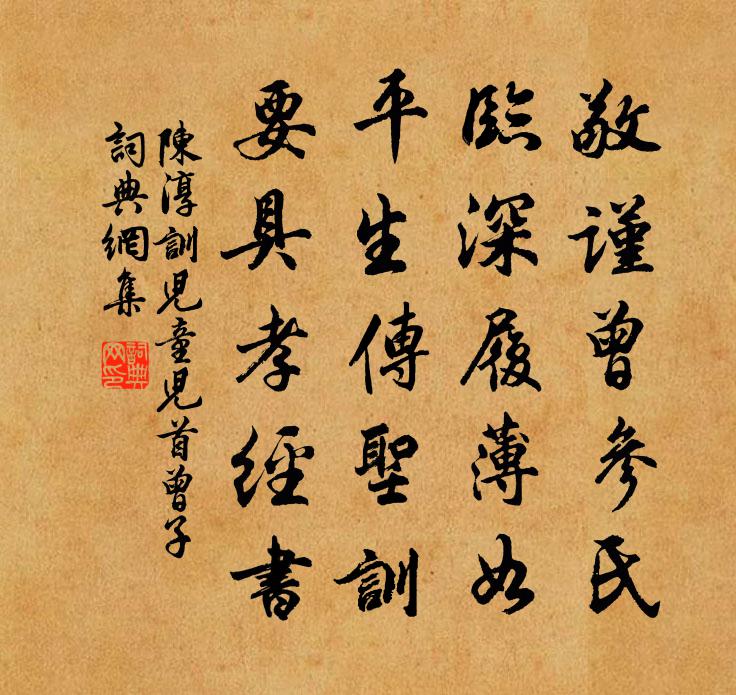 敬謹曾參氏
臨深履薄如
平生傳聖訓
要具孝經書
陳淳訓児童児首曾子
詞典網集
詞典网印